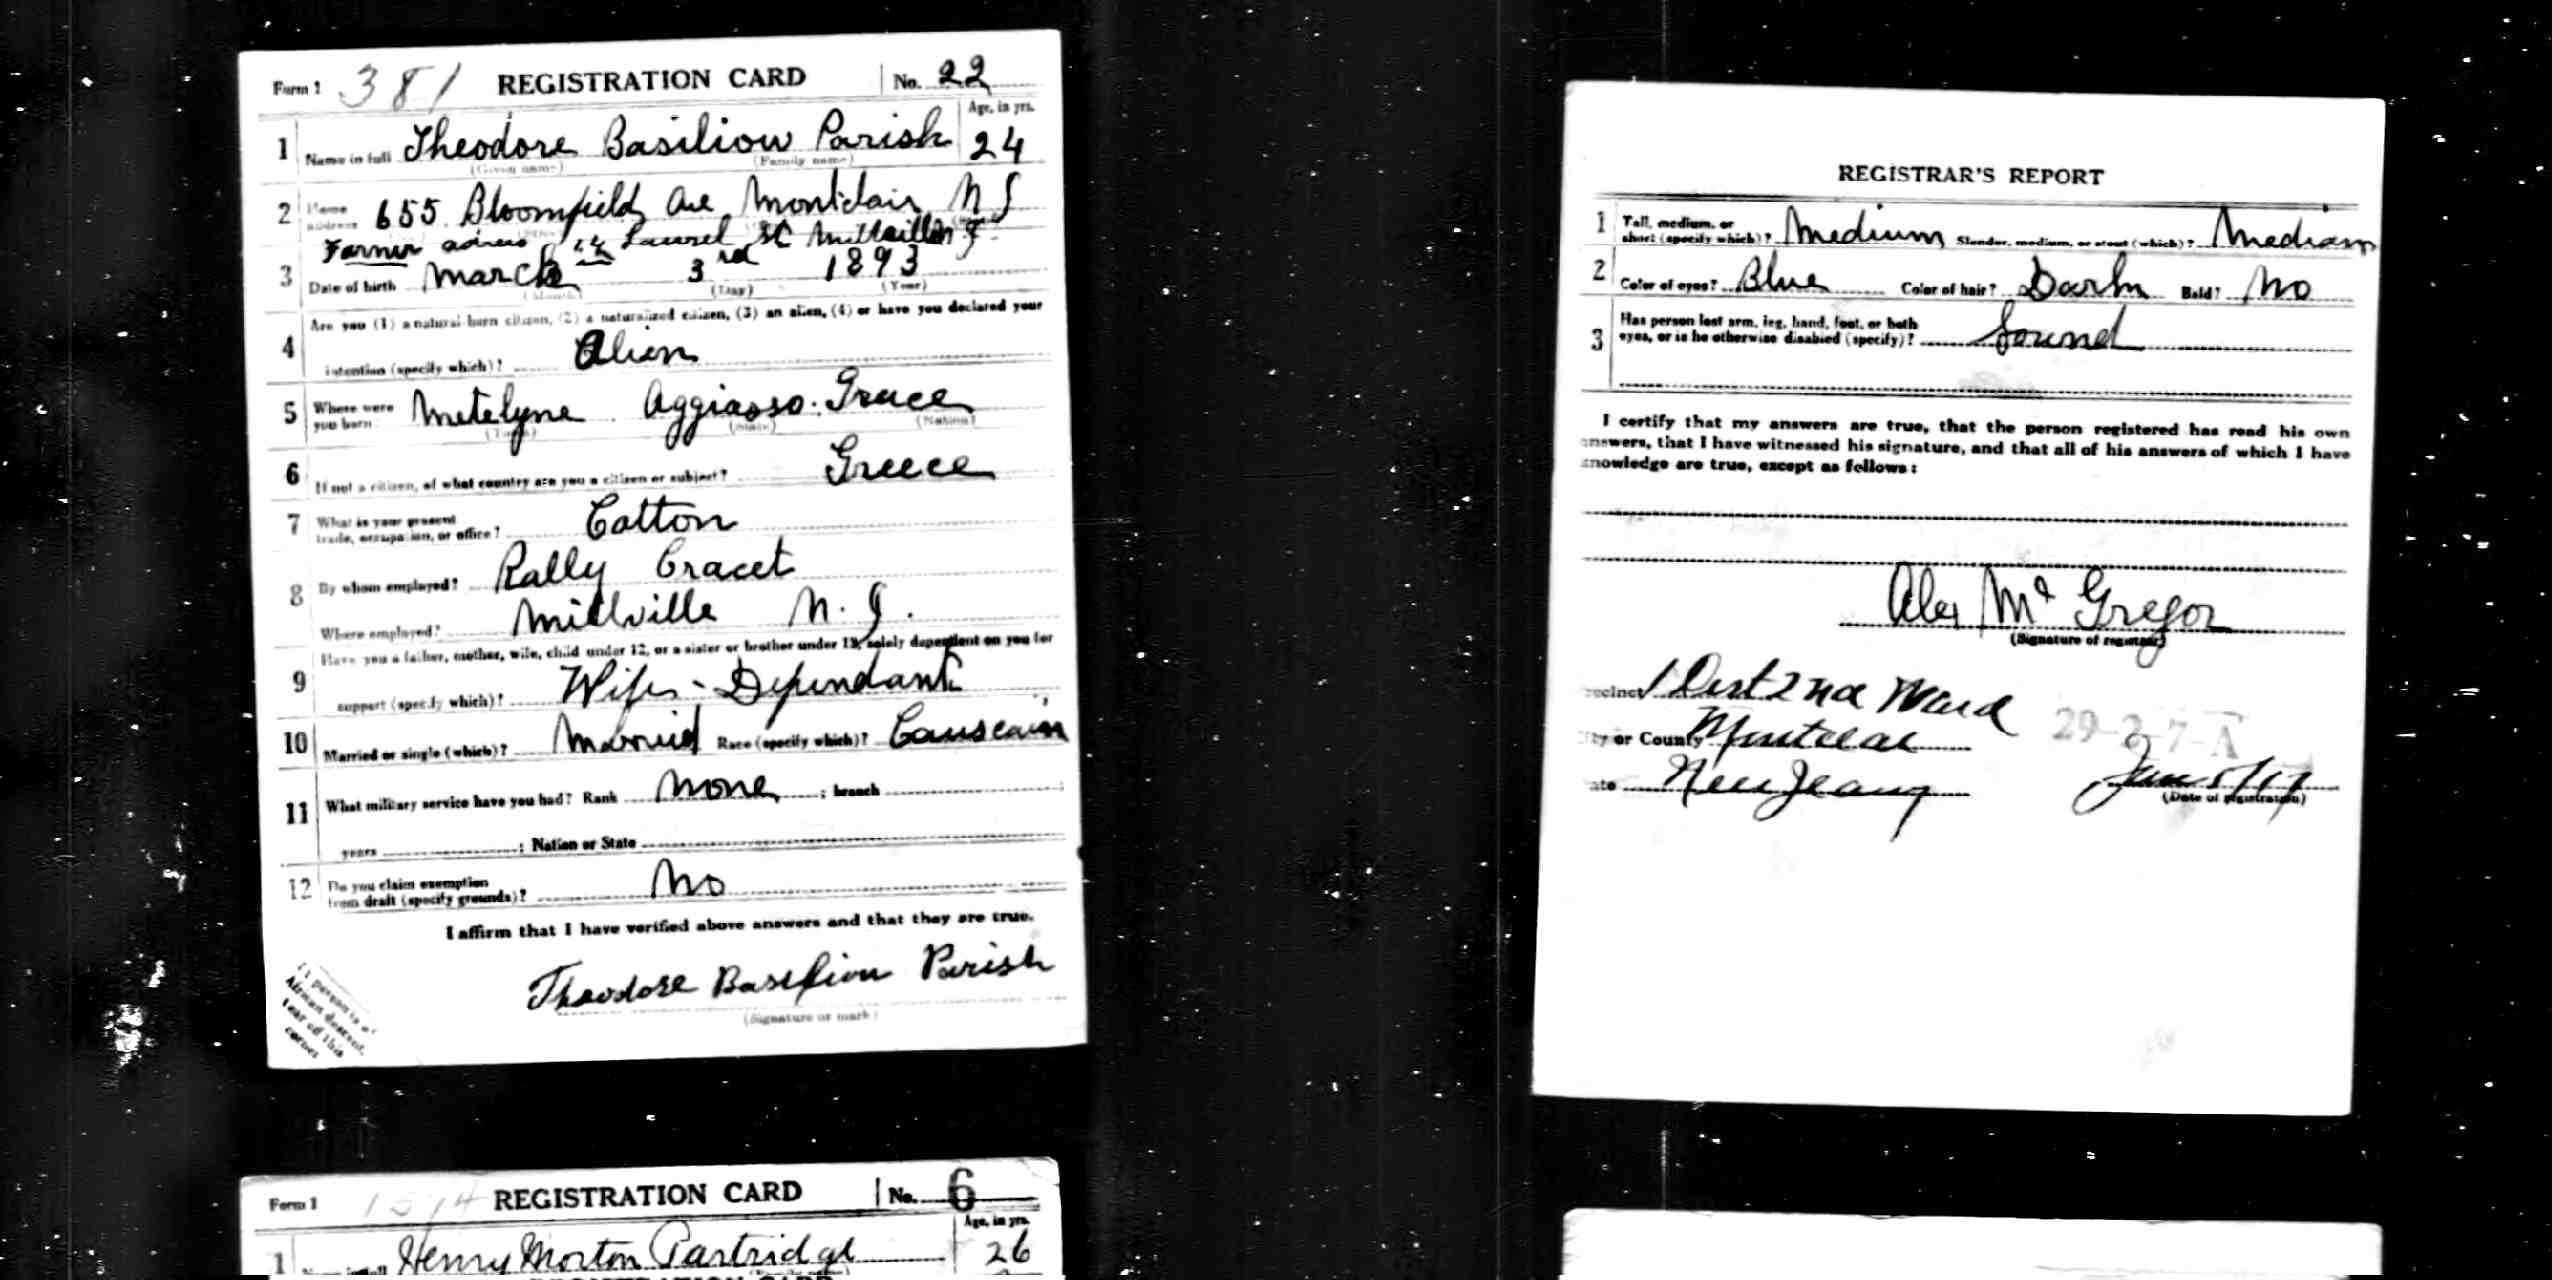 Form 1 381 REGISTRATION CARD No. 22
Age, in yrs.
1 Name in full Theodore Basiliow Parish 24
(Given name) (Family name)
2 Home address 655 Bloomfield Ave Montclair N J
Former adress 22 Laurel St Millville N J
3 Date of birth March 3rd 1893
(Month) (Day) (Year)
Are you (1) a natural-born citizen, (2) a naturalized citizen, (3) an alien, (4) or have you declared your
4 intention (specify which)? Alien
5 Where were you born? Metelyne Aggiasso. Greece
(Town) (State) (Nation)
6 If not a citizen, of what country are you a citizen or subject? Greece
7 What is your present trade, occupation, or office? Cotton
8 By whom employed? Rally Cracet
Where employed? Millville N. J.
Have you a father, mother, wife, child under 12, or a sister or brother under 12, solely dependent on you for
9 support (specify which)? Wife - Dependant
10 Married or single (which)? Married Race (specify which)? Causcain
11 What military service have you had? Rank None ; branch
years ; Nation or State
12 Do you claim exemption from draft (specify grounds)? No
I affirm that I have verified above answers and that they are true.
Theodore Basilion Parish
(Signature or mark)
If person is of
African descent,
tear off this
corner
Form 1 1514 REGISTRATION CARD No. 6
Age, in yrs.
1 Name in full Henry Morton Partridge 26
REGISTRAR'S REPORT
1 Tall, medium, or short (specify which)? Medium Slender, medium, or stout (which)? Medium
2 Color of eyes? Blue Color of hair? Dark Bald? No
3 Has person lost arm, leg, hand, foot, or both
eyes, or is he otherwise disabled (specify)? Sound
I certify that my answers are true, that the person registered has read his own
answers, that I have witnessed his signature, and that all of his answers of which I have
knowledge are true, except as follows:
Alex McGregor
(Signature of registrar)
recinct 1 Dist 2nd Ward
ity or County Montclair 29-2-7-A
ate New Jersey June 5/17
(Date of registration)